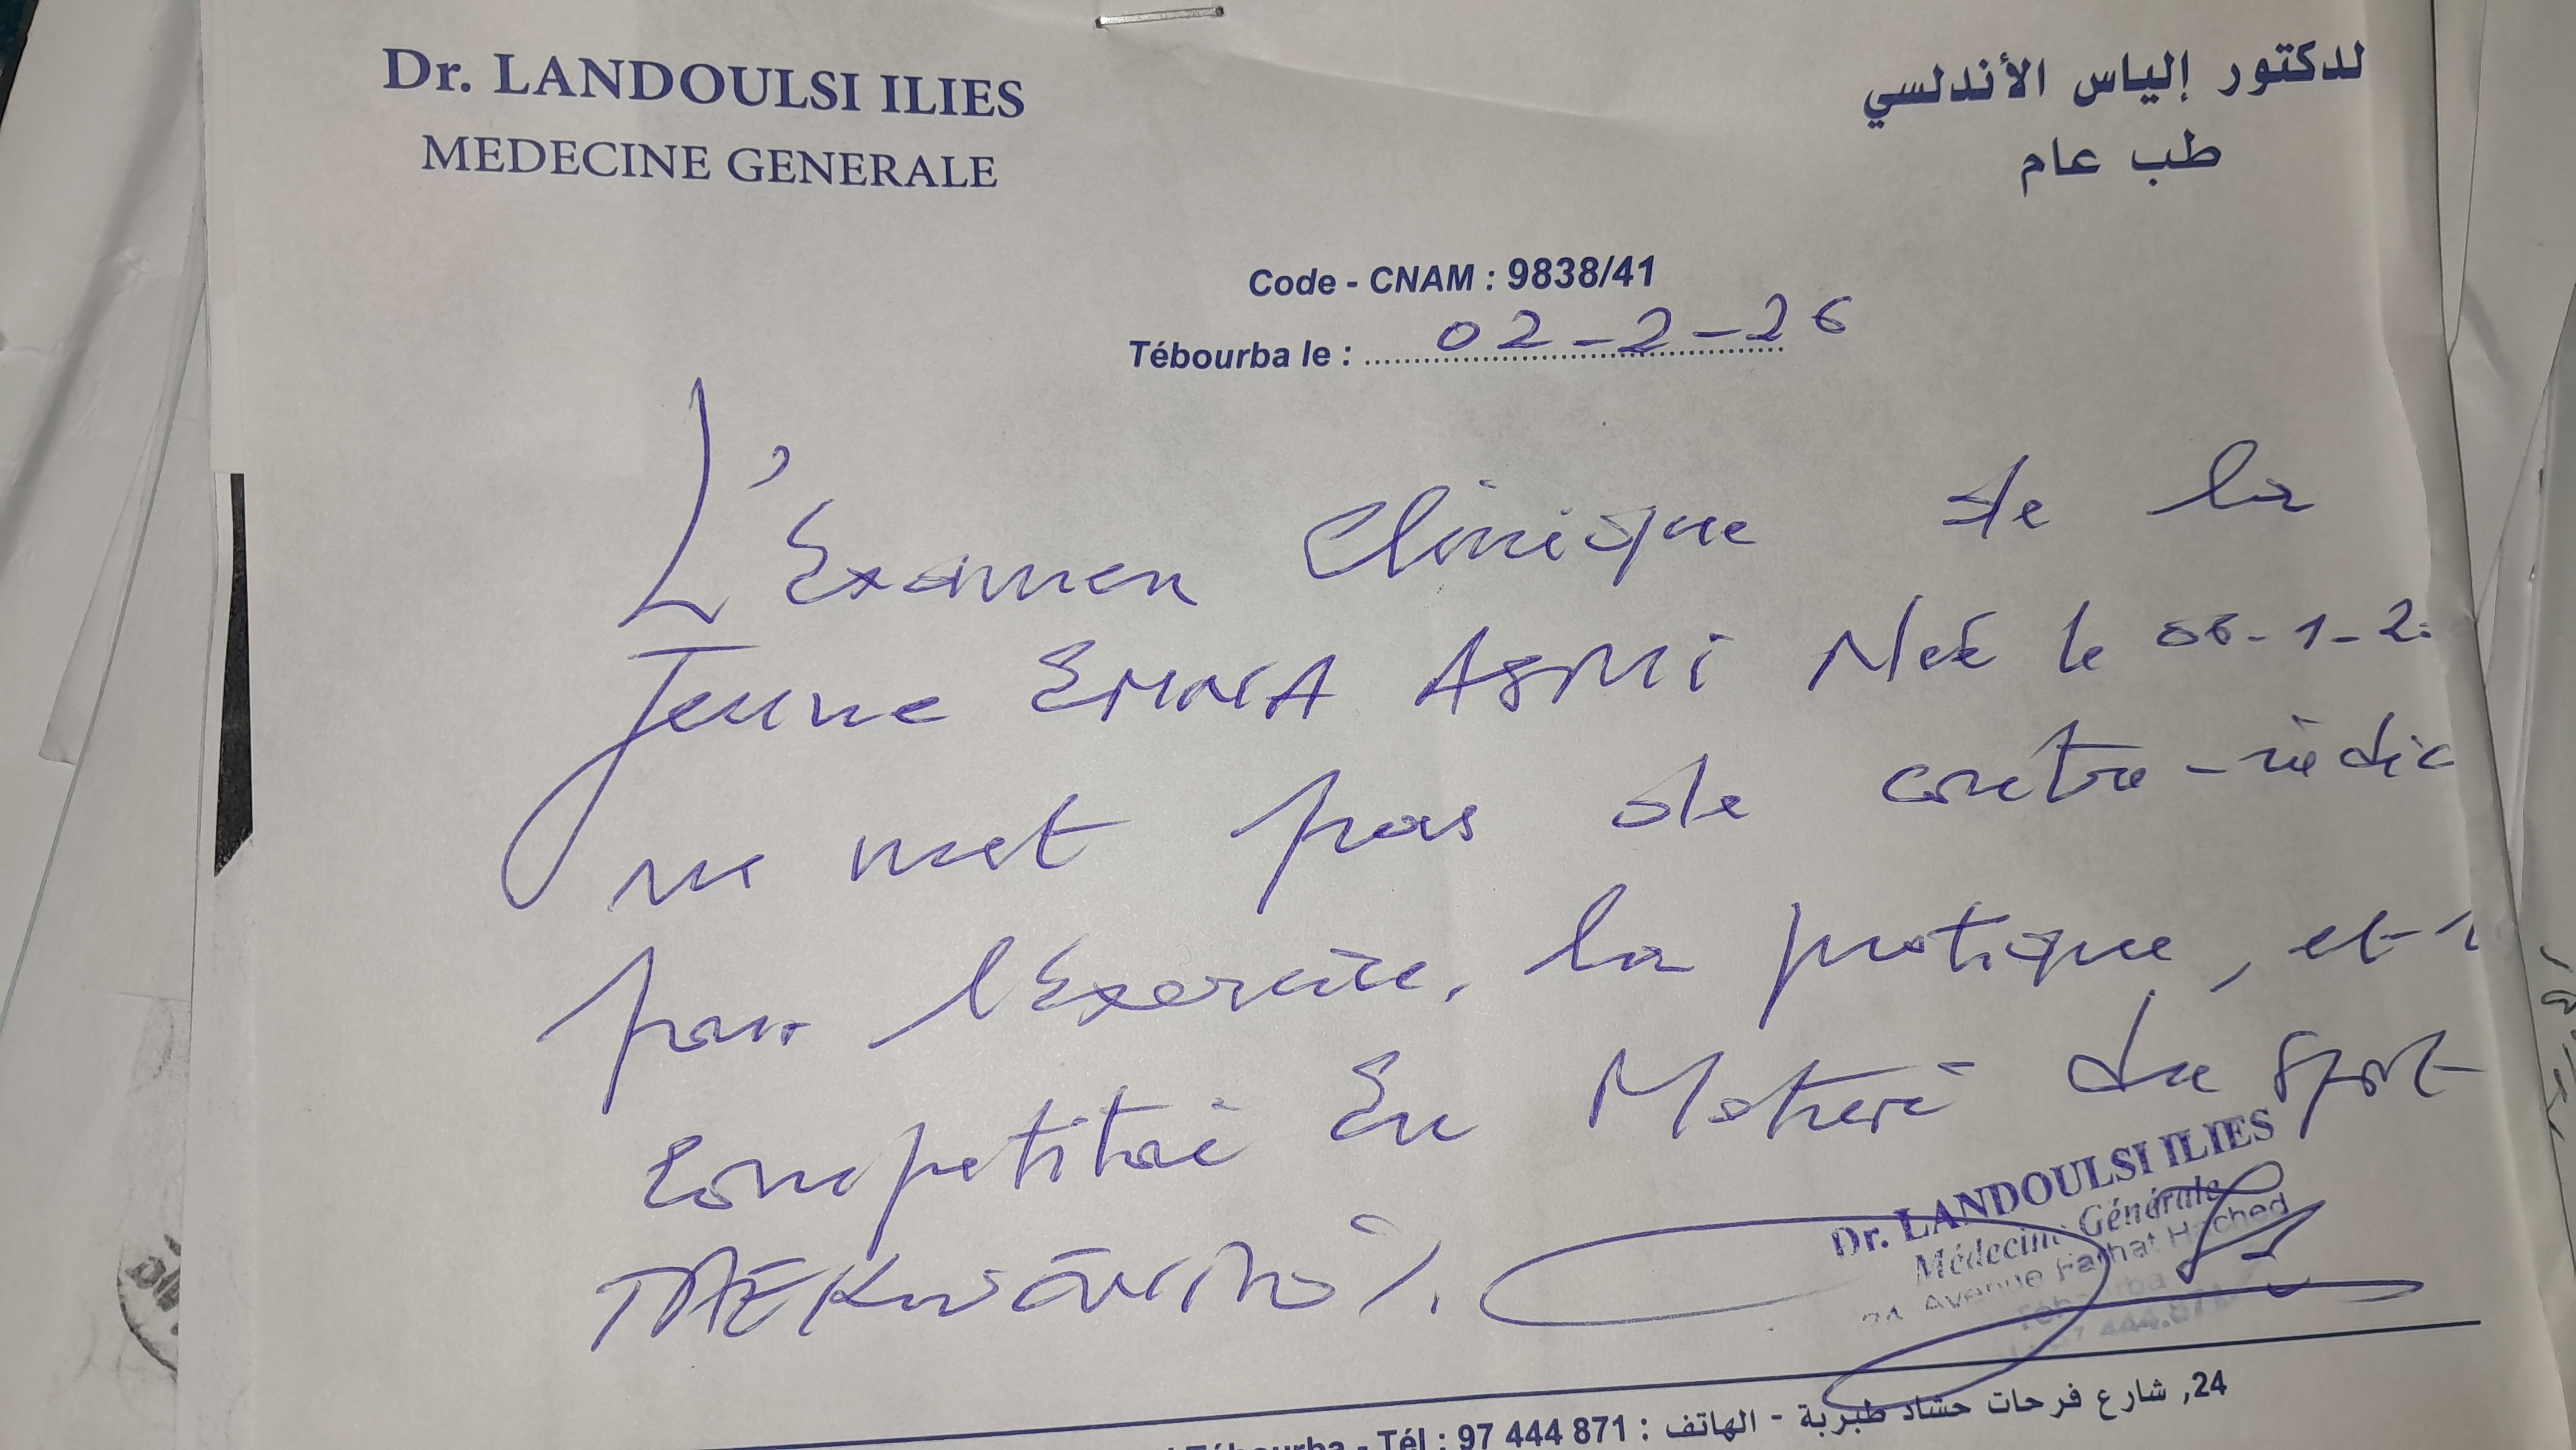 Dr. LANDOULSI ILIES
MEDECINE GENERALE
لدكتور إلياس الأندلسي
طب عام
Code - CNAM : 9838/41
Tébourba le : 02-2-26
L'Examen Clinique de la
Jeune EMNA ASMI Née le 06-1-2
ne met pas de contre-indic
pour l'Exercice, la pratique, et
Competition En Matière du Sport
TAEKWONDO
Dr. LANDOULSI ILIES
Médecine Générale
24 Avenue Farhat Hached
Tébourba
24, شارع فرحات حشاد طبربة - الهاتف : Tébourba - Tél : 97 444 871